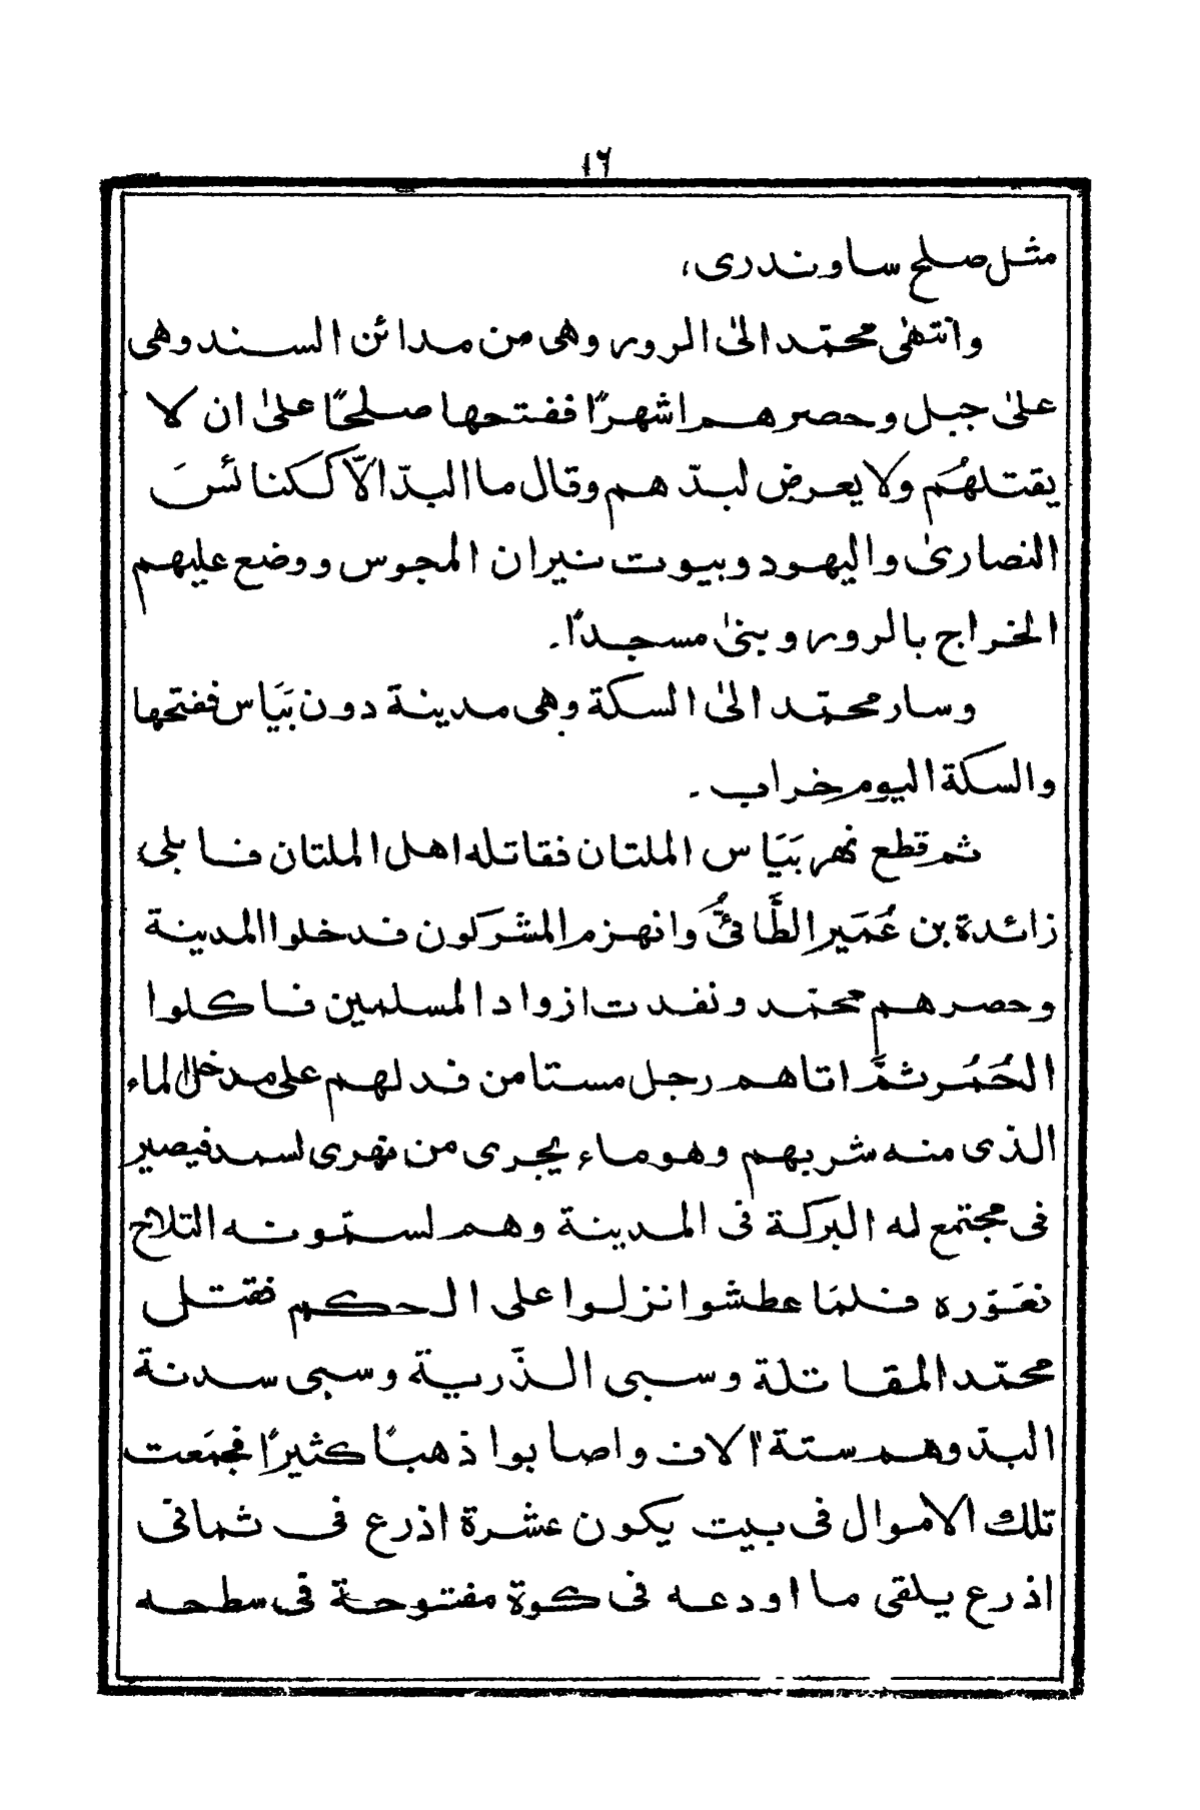 ١٦
مثل صلح ساوندرى،
وانتهٰى محمّد الىٰ الرور وهى من مدائن السند وهى
علىٰ جبل وحصرهم اشهرًا ففتحها صلحًا علىٰ ان لا
يقتلهُم ولا يعرض لبدّهم وقال ما البدّ الّا ككنائسَ
النصارىٰ واليهود وبيوت نيران المجوس ووضع عليهم
الخراج بالرور وبنىٰ مسجدًا.
وسار محمّد الىٰ السكة وهى مدينة دون بَيَاس ففتحها
والسكة اليوم خراب.
ثم قطع نهر بَيَاس الملتان فقاتله اهل الملتان فابلىٰ
زائدة بن عُمَير الطَّائىُّ وانهزم المشركون فدخلوا المدينة
وحصرهم محمّد ونفدت ازواد المسلمين فاكلوا
الحُمُر ثمَّ اتاهم رجل مستامن فدلهم على مدخل الماء
الذى منه شربهم وهو ماء يجرى من نهرى لسمد فيصير
فى مجتمع له البركة فى المدينة وهم لسمّونه التلاح
نعَوّره فلمَا عطشوا نزلوا على الحكم فقتل
محمّد المقاتلة وسبى الذّرية وسبى سدنة
البدّ وهم ستة اٰلاف واصابوا ذهبًا كثيرًا فجمَعت
تلك الاموال فى بيت يكون عشرة اذرع فى ثمانى
اذرع يلقى ما اودعه فى كوة مفتوحة فى سطحه